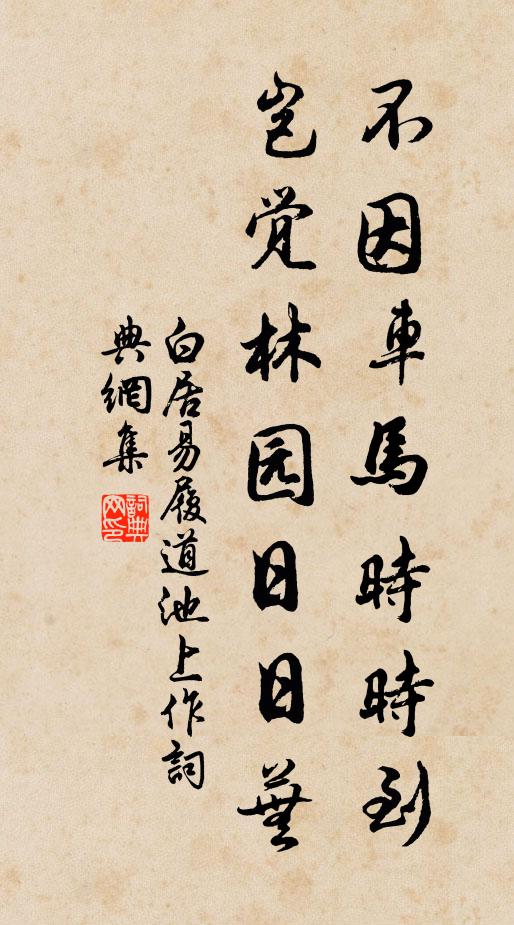 不因車馬時時到
岂覺林园日日蕪
白居易履道池上作詞
典網集
詞典網印